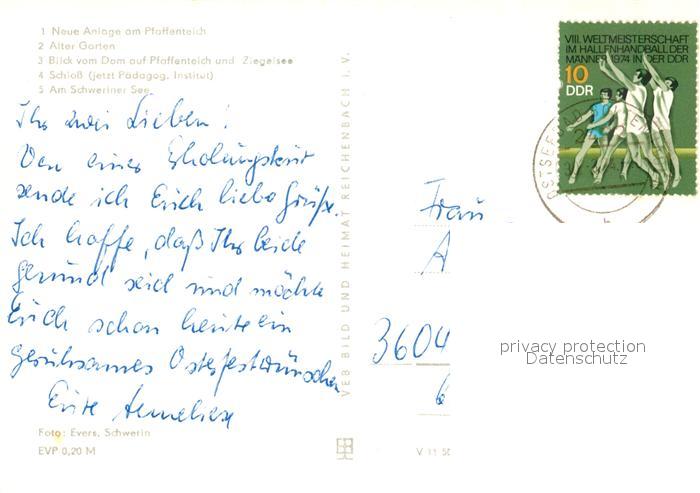 1 Neue Anlage am Pfaffenteich
2 Alter Garten
3 Blick vom Dom auf Pfaffenteich und Ziegelsee
4 Schloß (jetzt Pädagog. Institut)
5 Am Schweriner See
Ihr zwei Lieben!
Von einer Erholungskur
sende ich Euch liebe Grüße.
Ich hoffe, daß Ihr beide
gesund seid und möchte
Euch schon heute ein
geruhsames Osterfest wünschen
Eure Anneliese
Foto: Evers, Schwerin
EVP 0,20 M
VEB BILD UND HEIMAT REICHENBACH I. V.
V 11 50
VIII. WELTMEISTERSCHAFT
IM HALLENHANDBALL DER
MÄNNER 1974 IN DER DDR
10
DDR
OSTSEEBAD
b
Frau
A
3604
6
privacy protection
Datenschutz